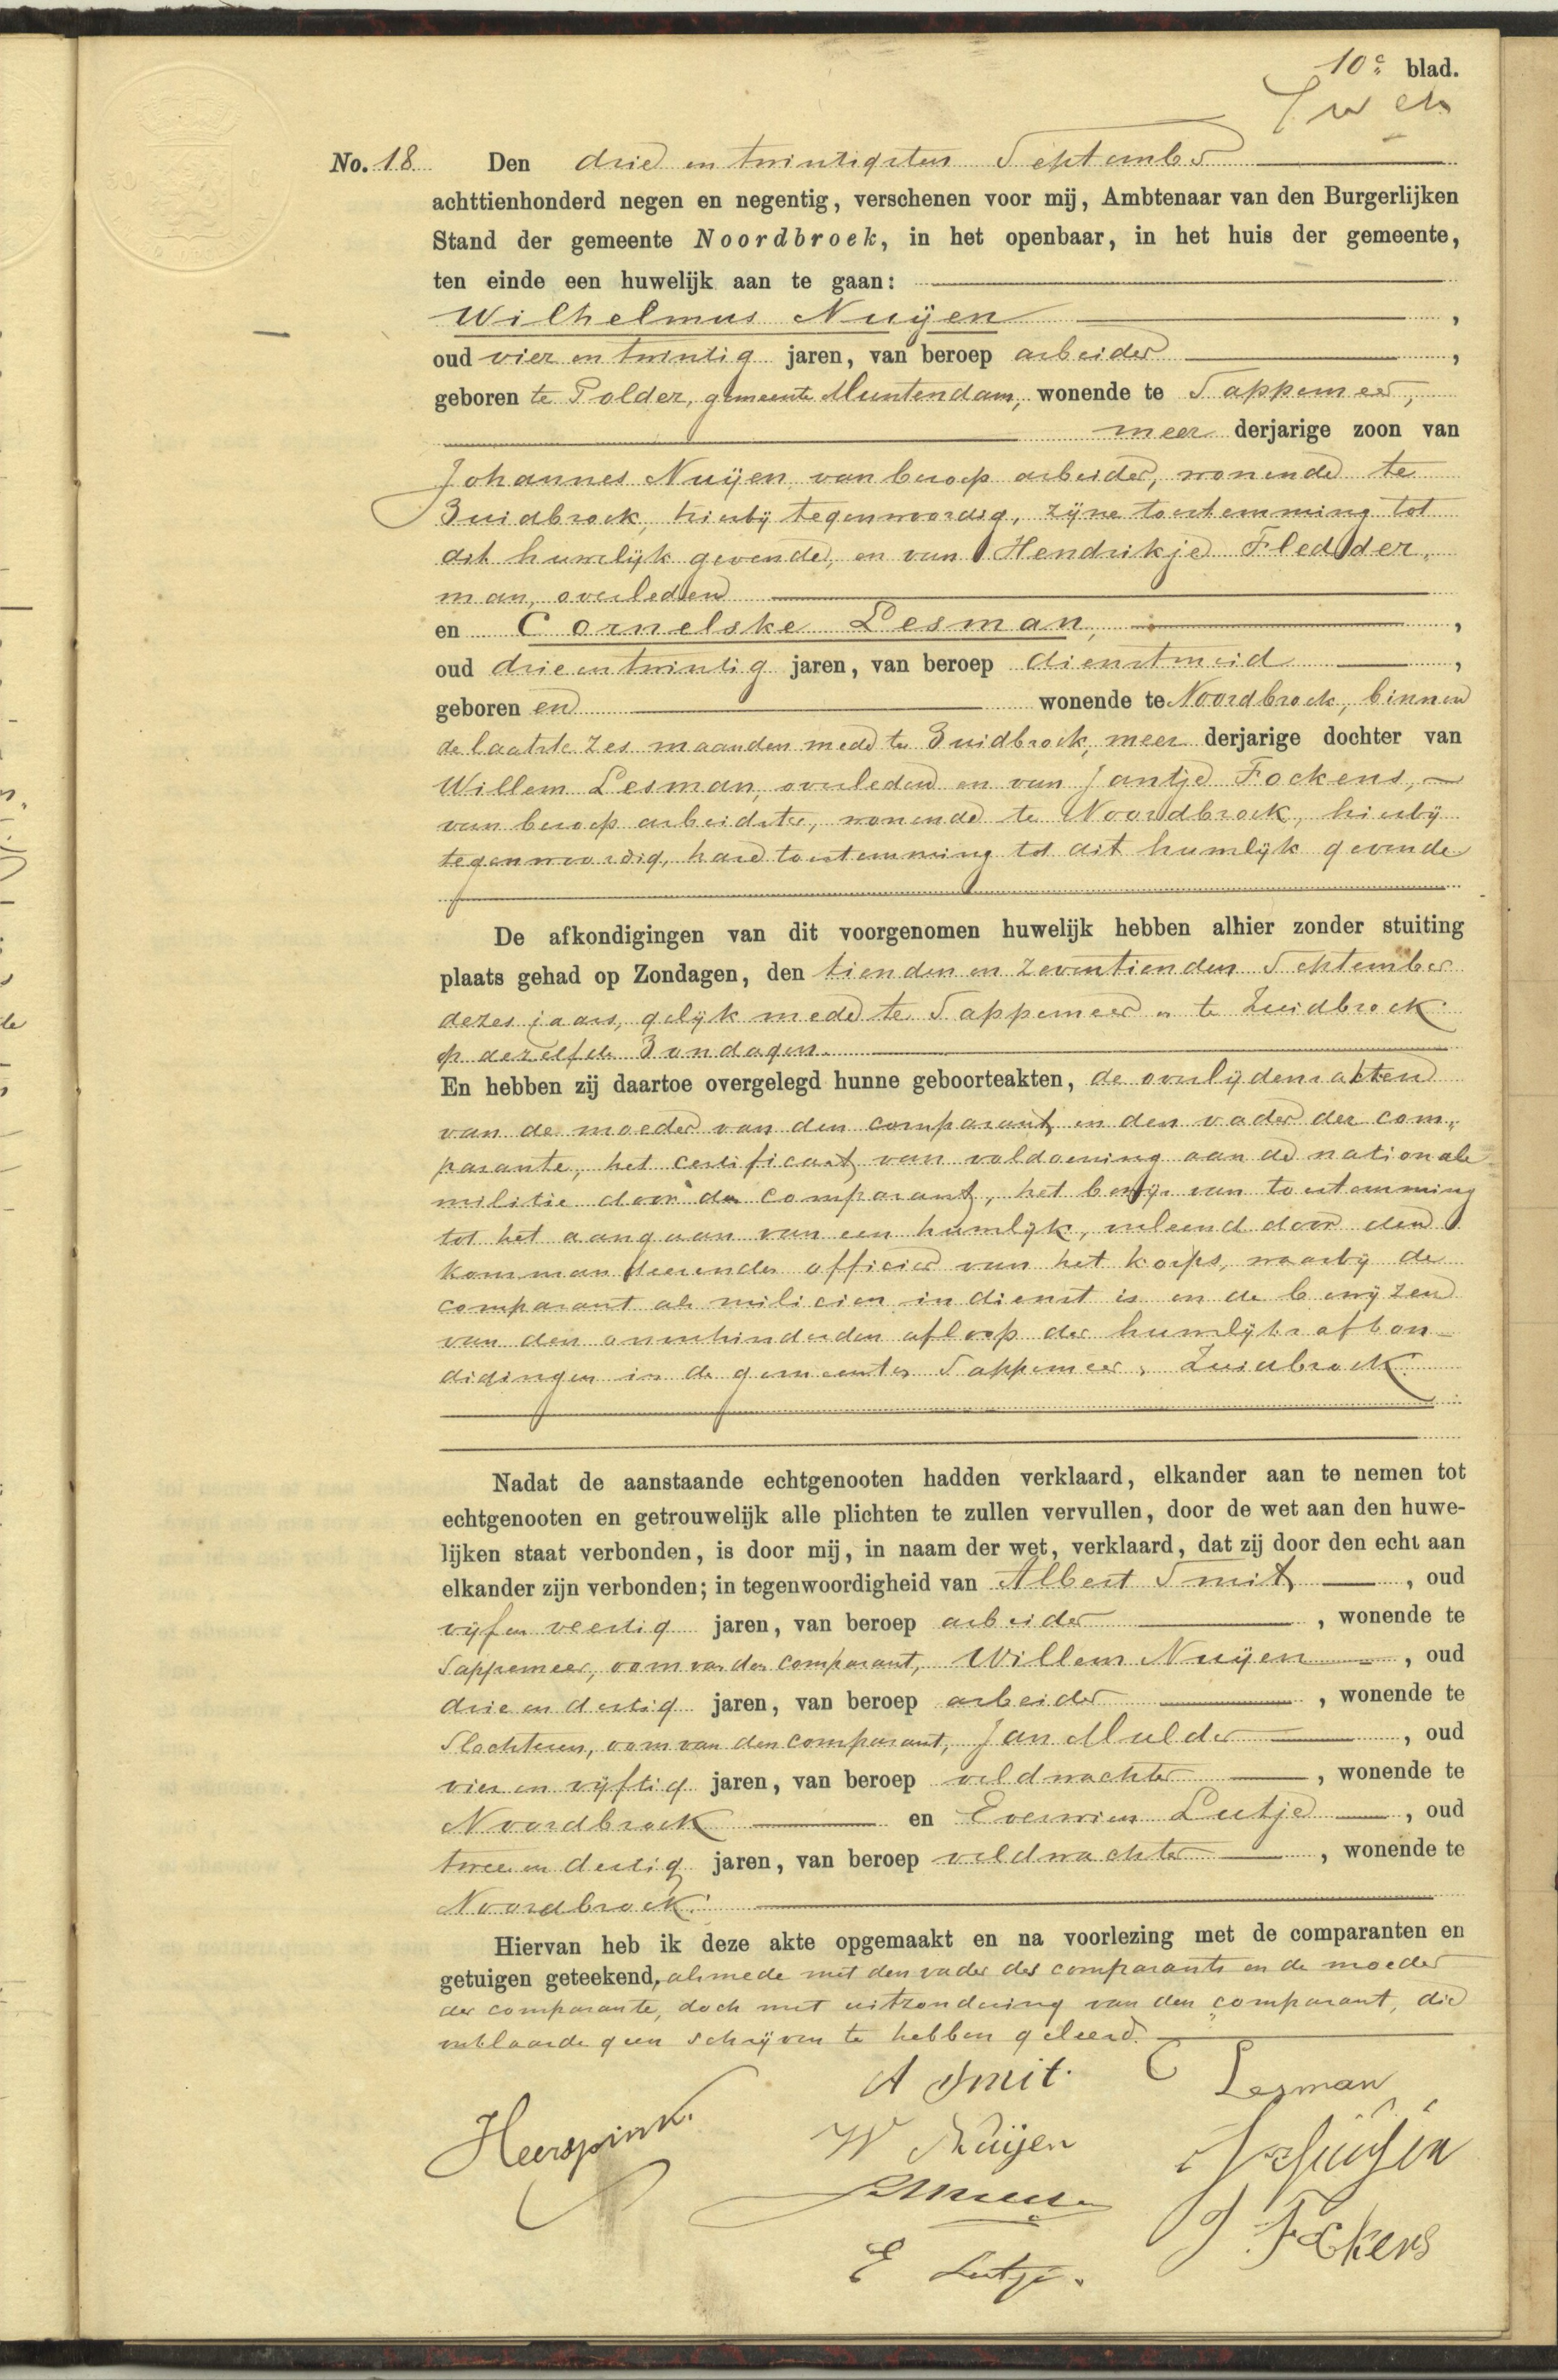 10e blad.
No. 18 Den drie en twintigsten September
achttienhonderd negen en negentig, verschenen voor mij, Ambtenaar van den Burgerlijken
Stand der gemeente Noordbroek, in het openbaar, in het huis der gemeente,
ten einde een huwelijk aan te gaan:
Wilhelmus Nuijen,
oud vier en twintig jaren, van beroep arbeider,
geboren te Polder, gemeente Muntendam, wonende te Sappemeer,
meer derjarige zoon van
Johannes Nuijen van beroep arbeider, wonende te
Zuidbroek, hierbij tegenwoordig, zijne toestemming tot
dit huwelijk gevende, en van Hendrikje Fledder„
man, overleden
en Cornelske Lesman,
oud drie en twintig jaren, van beroep dienstmeid,
geboren en wonende te Noordbroek, binnen
de laatste zes maanden mede te Zuidbroek, meer derjarige dochter van
Willem Lesman, overleden en van Jantje Fockens,
van beroep arbeidster, wonende te Noordbroek, hierbij
tegenwoordig, hare toestemming tot dit huwelijk gevende
De afkondigingen van dit voorgenomen huwelijk hebben alhier zonder stuiting
plaats gehad op Zondagen, den tienden en zeventienden September
dezes jaars, gelijk mede te Sappemeer en te Zuidbroek
op dezelfde Zondagen.
En hebben zij daartoe overgelegd hunne geboorteakten, de overlijdensakten
van de moeder van den comparant en den vader der com„
parante, het certificaat van voldoening aan de nationale
militie door den comparant, het bewijs van toestemming
tot het aangaan van een huwelijk, verleend door den
kommandeerenden officier van het korps, waarbij de
comparant als milicien in dienst is en de bewijzen
van den onverhinderden afloop der huwelijksafkon-
digingen in de gemeenten Sappemeer, Zuidbroek.
Nadat de aanstaande echtgenooten hadden verklaard, elkander aan te nemen tot
echtgenooten en getrouwelijk alle plichten te zullen vervullen, door de wet aan den huwe-
lijken staat verbonden, is door mij, in naam der wet, verklaard, dat zij door den echt aan
elkander zijn verbonden; in tegenwoordigheid van Albert Smit, oud
vijf en veertig jaren, van beroep arbeider, wonende te
Sappemeer, oom van den comparant, Willem Nuijen, oud
drie en dertig jaren, van beroep arbeider, wonende te
Slochteren, oom van den comparant, Jan Mulder, oud
vier en vijftig jaren, van beroep veldwachter, wonende te
Noordbroek en Everwien Lutje, oud
twee en dertig jaren, van beroep veldwachter, wonende te
Noordbroek.
Hiervan heb ik deze akte opgemaakt en na voorlezing met de comparanten en
getuigen geteekend, alsmede met den vader des comparants en de moeder
der comparante, doch met uitzondering van den comparant, die
verklaarde geen schrijven te hebben geleerd.
A Smit. C Lesman
Heerspink.
W Nuijen J Nuijen
J Mulder
J. Fokkens
E Lutje.